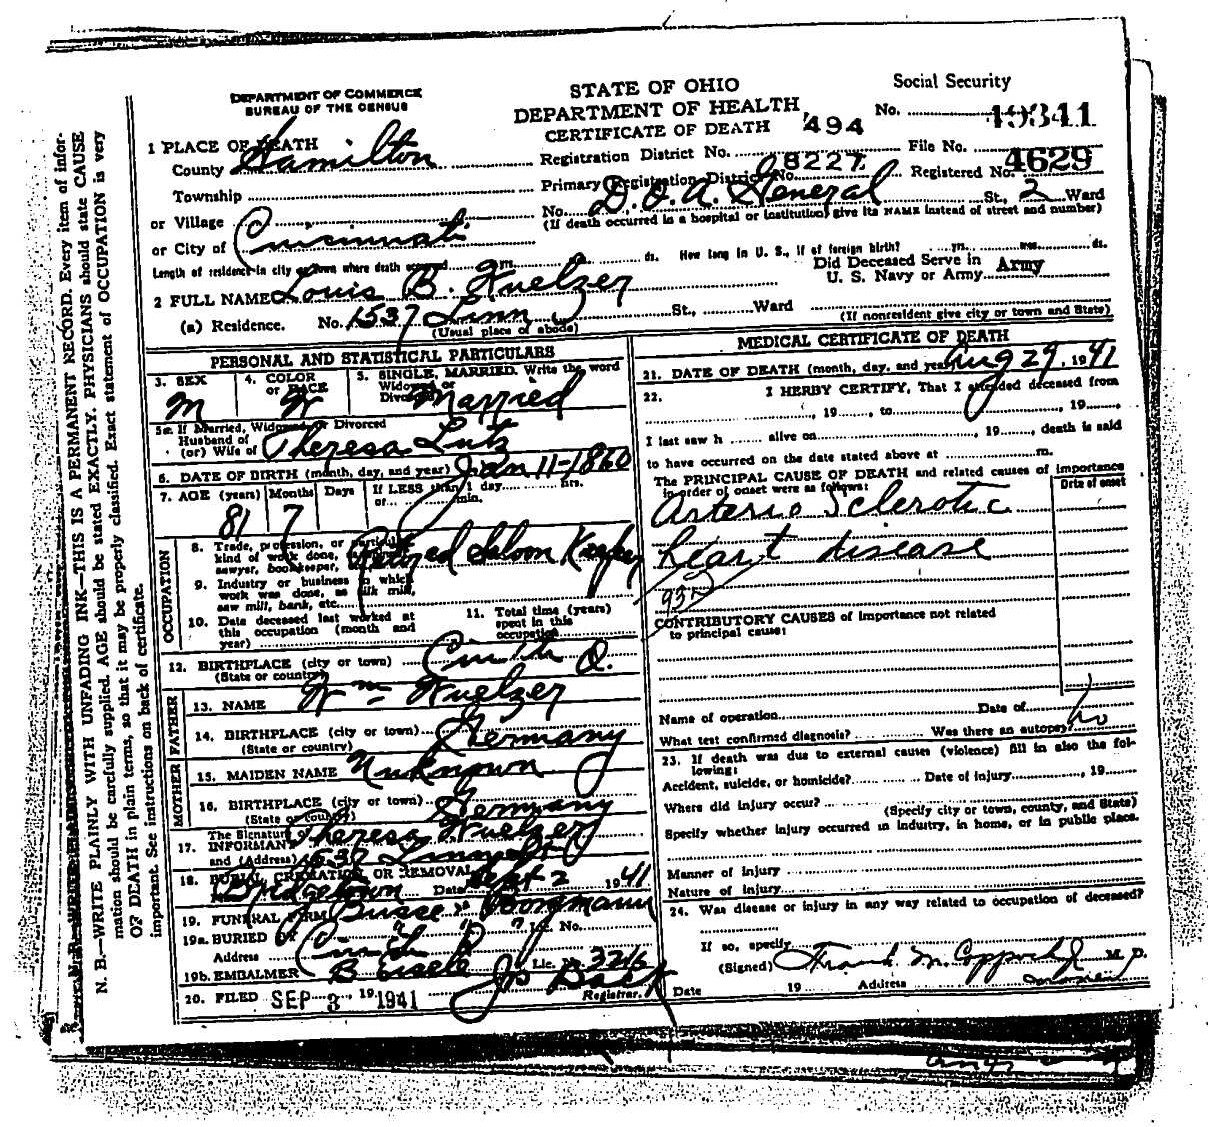 DEPARTMENT OF COMMERCE
BUREAU OF THE CENSUS
STATE OF OHIO
DEPARTMENT OF HEALTH
CERTIFICATE OF DEATH
Social Security
No.
1 PLACE OF DEATH
County Hamilton
Registration District No. 494
File No. 49341
Township
Primary Registration District No. 8227
Registered No. 4629
or Village
No. D.O.A. General St., 2 Ward
(If death occurred in a hospital or institution, give its NAME instead of street and number)
or City of Cincinnati
Length of residence in city or town where death occurred yrs. ds. How long in U. S., if of foreign birth? yrs. mos. ds.
Did Deceased Serve in
U. S. Navy or Army Army
2 FULL NAME Louis B. Kuelzer
(a) Residence. No. 1537 Linn St., Ward
(Usual place of abode)
(If nonresident give city or town and State)
PERSONAL AND STATISTICAL PARTICULARS
3. SEX M
4. COLOR or RACE W
5. SINGLE, MARRIED, Write the word
Widowed or
Divorced Married
5a. If Married, Widowed, or Divorced
Husband of
(or) Wife of Theresa Lutz
6. DATE OF BIRTH (month, day, and year) Jan 11-1860
7. AGE (years) Months Days If LESS than 1 day hrs.
or min.
81 7
OCCUPATION
8. Trade, profession, or particular
kind of work done, as
sawyer, bookkeeper, Retired Saloon Keeper
9. Industry or business in which
work was done, as silk mill,
saw mill, bank, etc.
10. Date deceased last worked at
this occupation (month and
year)
11. Total time (years)
spent in this
occupation
12. BIRTHPLACE (city or town) Cinti O.
(State or country)
FATHER
13. NAME Wm Kuelzer
14. BIRTHPLACE (city or town) Germany
(State or country)
MOTHER
15. MAIDEN NAME Unknown
16. BIRTHPLACE (city or town) Germany
(State or country)
The Signature of
17. INFORMANT Theresa Kuelzer
and (Address) 1537 Linn St
18. BURIAL, CREMATION, OR REMOVAL
Bridgetown Date Sept 2 1941
19. FUNERAL FIRM Busse & Borgmann
19a. BURIED BY " " " Lic. No.
Address Cinti O
19b. EMBALMER B Eisele Lic. No. 3216
20. FILED SEP 3 1941
Registrar.
MEDICAL CERTIFICATE OF DEATH
21. DATE OF DEATH (month, day, and year) Aug 29, 1941
22. I HERBY CERTIFY, That I attended deceased from
, 19 , to , 19 ,
I last saw h alive on , 19 , death is said
to have occurred on the date stated above at m.
The PRINCIPAL CAUSE OF DEATH and related causes of importance
in order of onset were as follows:
Date of onset
Arterio Sclerotic
heart disease
CONTRIBUTORY CAUSES of importance not related
to principal cause:
Name of operation Date of
What test confirmed diagnosis? Was there an autopsy? no
23. If death was due to external causes (violence) fill in also the fol-
lowing:
Accident, suicide, or homicide? Date of injury , 19
Where did injury occur?
(Specify city or town, county, and State)
Specify whether injury occurred in industry, in home, or in public place.
Manner of injury
Nature of injury
24. Was disease or injury in any way related to occupation of deceased?
If so, specify
(Signed) Frank M. Coppock Jr M. D.
Date 19 Address
N. B.—WRITE PLAINLY WITH UNFADING INK—THIS IS A PERMANENT RECORD. Every item of infor-
mation should be carefully supplied. AGE should be stated EXACTLY. PHYSICIANS should state CAUSE
OF DEATH in plain terms, so that it may be properly classified. Exact statement of OCCUPATION is very
important. See instructions on back of certificate.